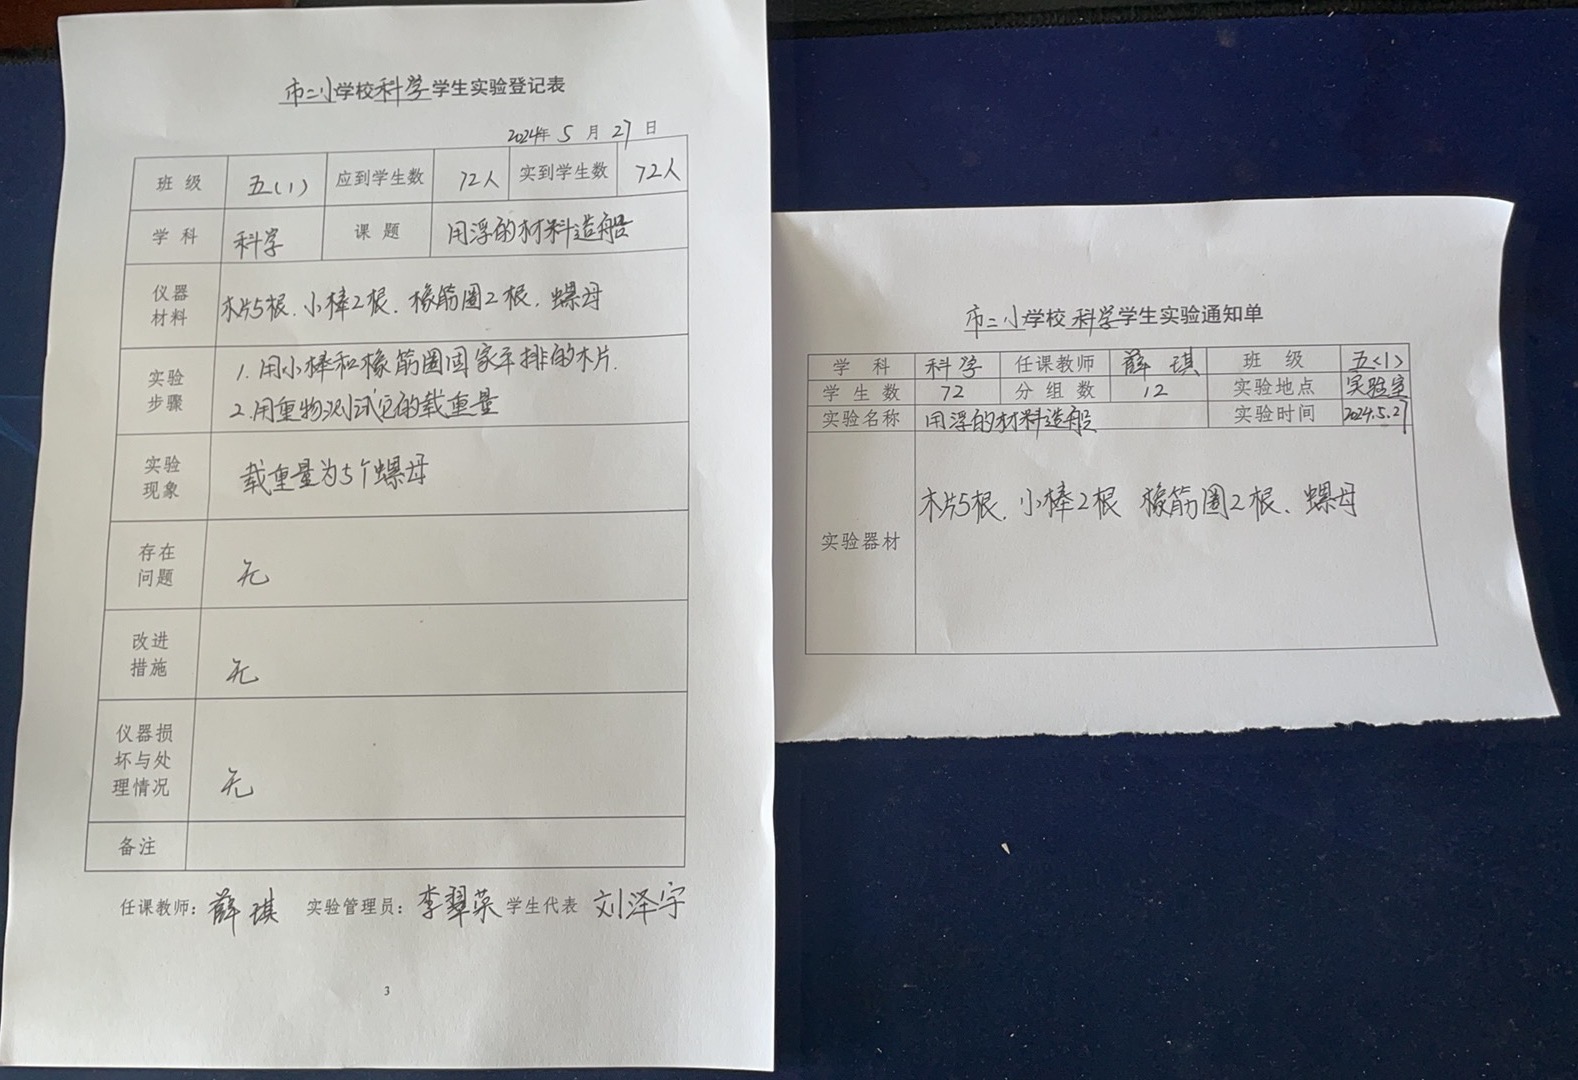 市二小学校科学学生实验登记表
2024年 5 月 27 日
班 级 五(1) 应到学生数 72人 实到学生数 72人
学 科 科学 课 题 用浮的材料造船
仪器
材料
木片5根、小棒2根、橡筋圈2根、螺母
实验
步骤
1.用小棒和橡筋圈固家平排的木片.
2.用重物测试它的载重量
实验
现象
载重量为5个螺母
存在
问题
无
改进
措施
无
仪器损
坏与处
理情况
无
备注
任课教师: 薛琪 实验管理员: 李翠英 学生代表 刘泽宇
3
市二小学校科学学生实验通知单
学 科 科学 任课教师 薛琪 班 级 五(1)
学 生 数 72 分 组 数 12 实验地点 实验室
实验名称 用浮的材料造船 实验时间 2024.5.27
实验器材
木片5根、小棒2根 橡筋圈2根、螺母